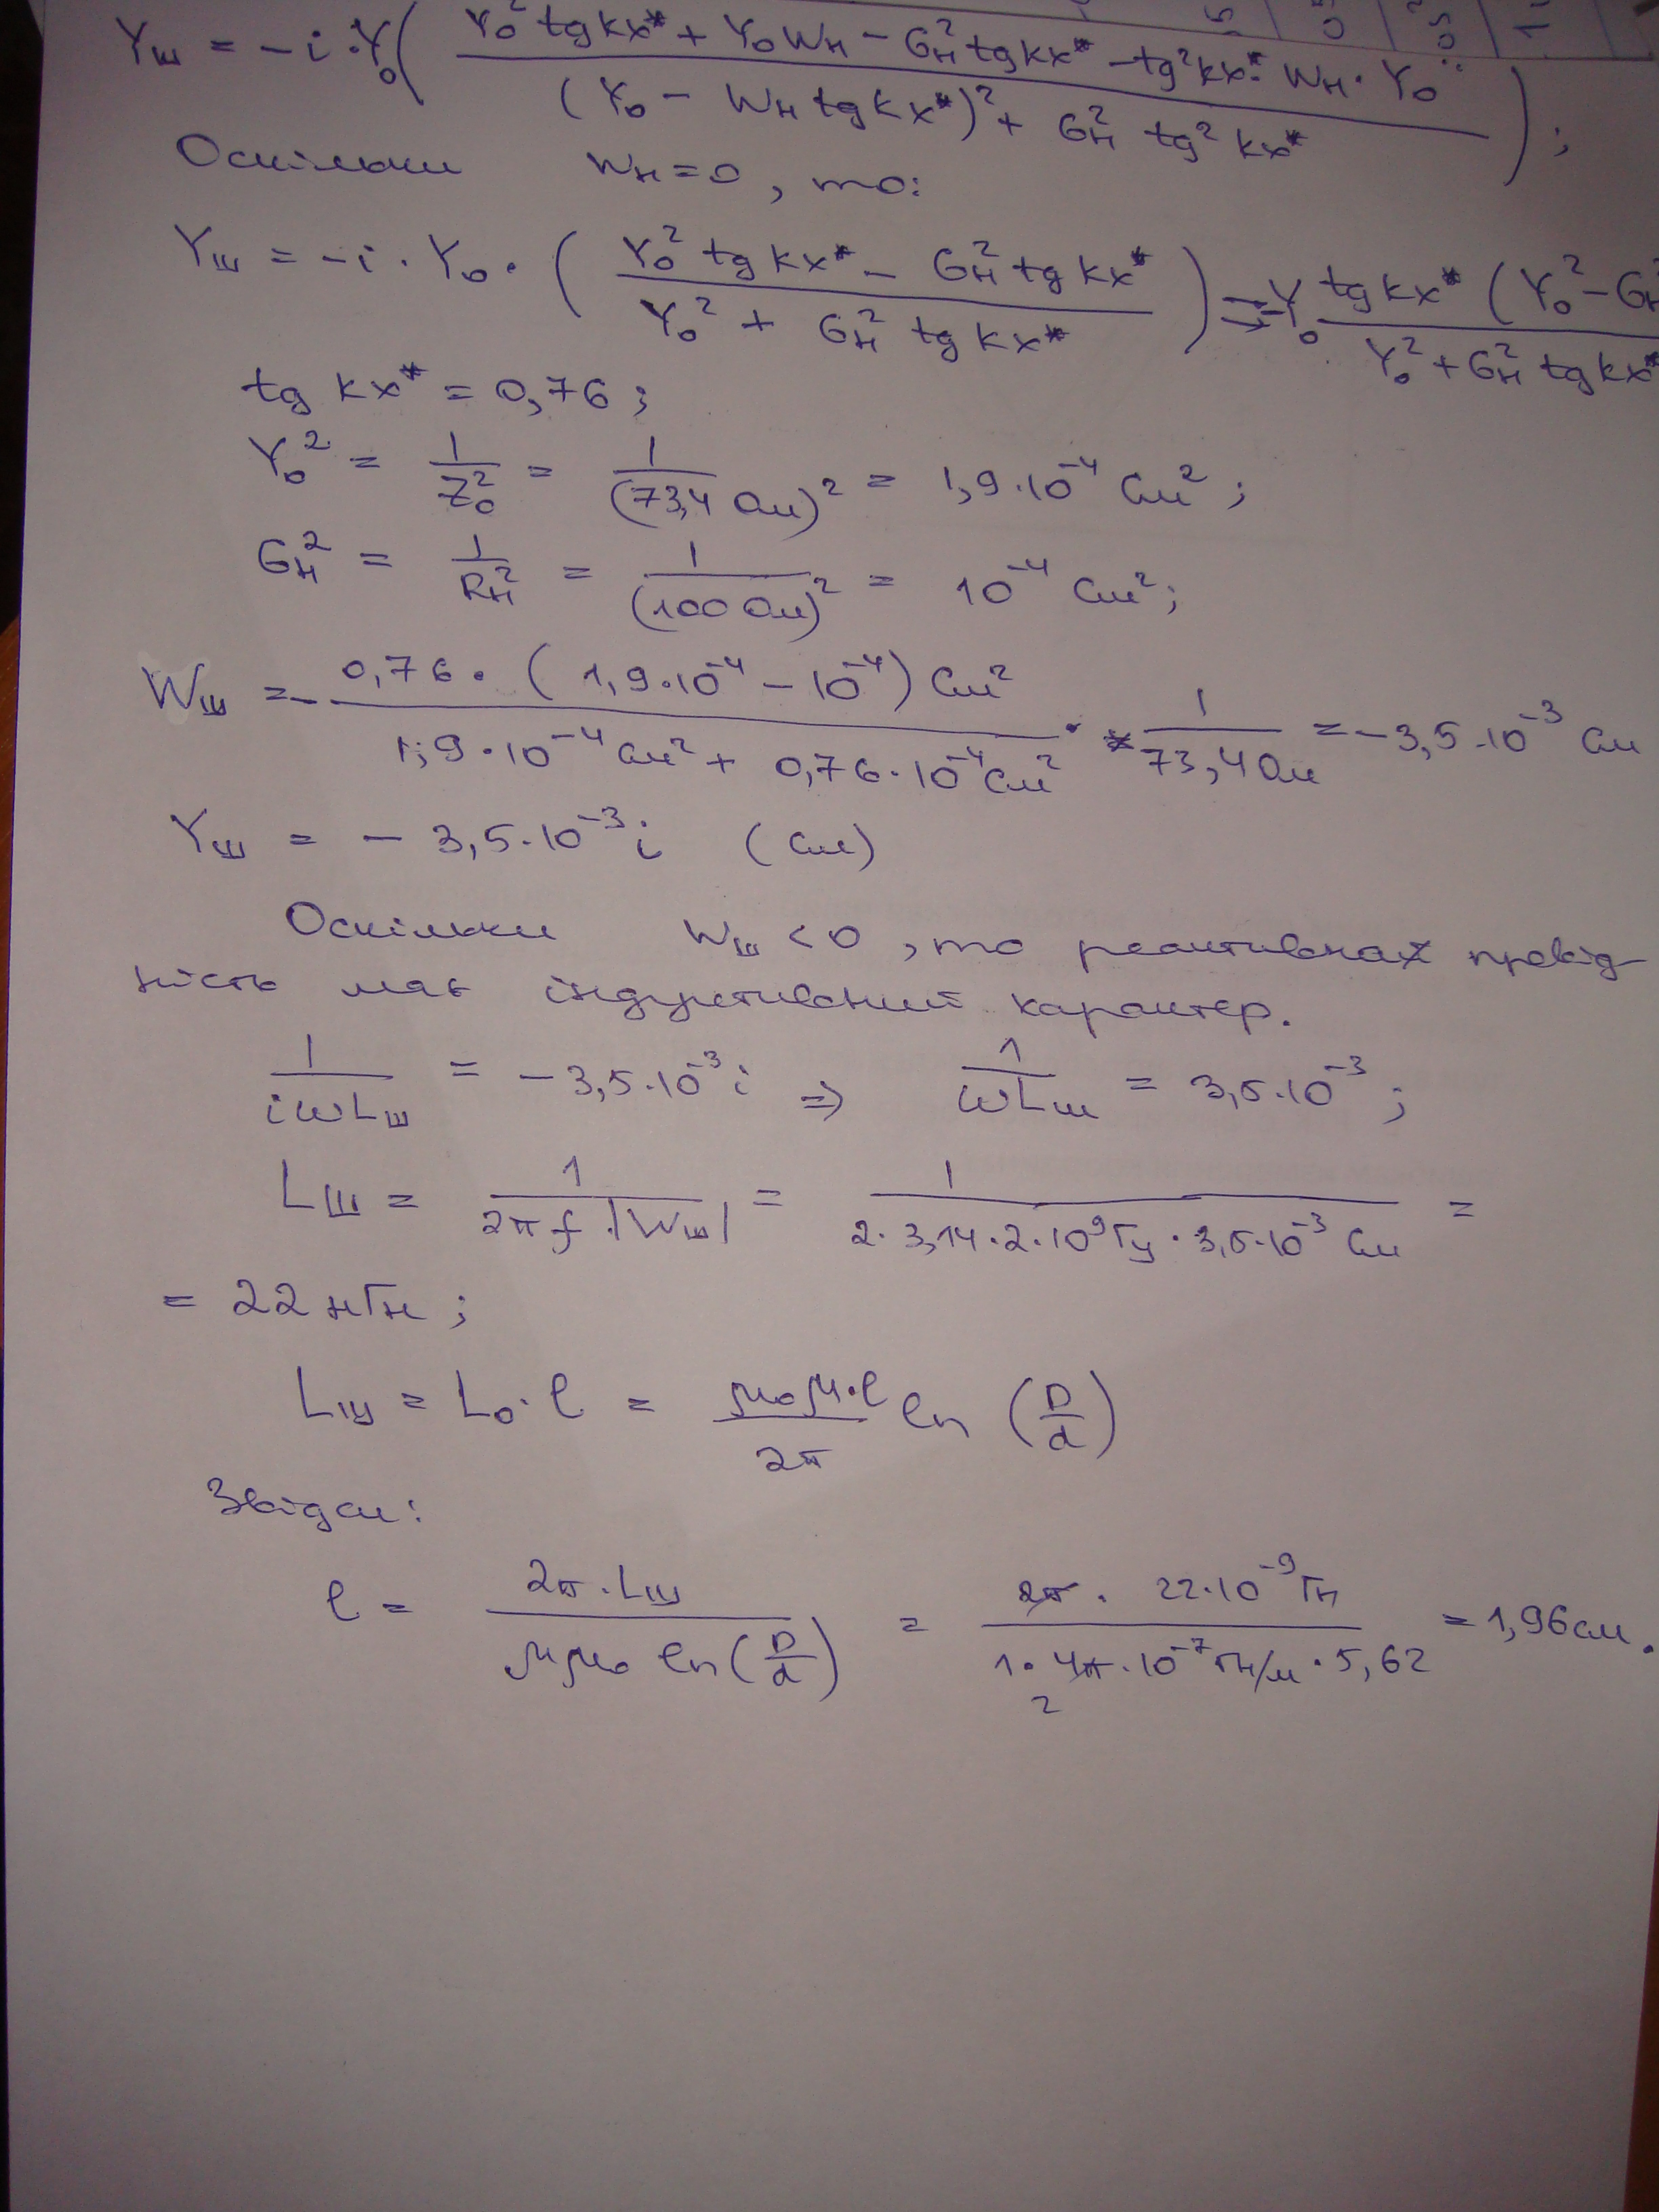 Yш = -i·Y₀( (Y₀² tg kx* + Y₀Wн - Gн² tg kx* - tg² kx*· Wн· Y₀) / ((Y₀ - Wн tg kx*)² + Gн² tg² kx*) );
Оскільки Wн = 0, то:
Yш = -i · Y₀ · ( (Y₀² tg kx* - Gн² tg kx*) / (Y₀² + Gн² tg kx*) ) = -Y₀ tg kx* (Y₀² - Gн² / Y₀² + Gн² tg kx*
tg kx* = 0,76;
Y₀² = 1/Z₀² = 1/(73,4 Ом)² = 1,9·10⁻⁴ См²;
Gн² = 1/Rн² = 1/(100 Ом)² = 10⁻⁴ См²;
Wш = - (0,76 · (1,9·10⁻⁴ - 10⁻⁴) См²) / (1,9·10⁻⁴ См² + 0,76·10⁻⁴ См²) · 1/(73,4 Ом) = -3,5·10⁻³ См
Yш = - 3,5·10⁻³ i (См)
Оскільки Wш < 0, то реактивна провід-
ність має індуктивний характер.
1/(iωLш) = -3,5·10⁻³ i ⇒ 1/(ωLш) = 3,5·10⁻³;
Lш = 1/(2πf·|Wш|) = 1/(2·3,14·2·10⁹ Гц · 3,5·10⁻³ См) =
= 22 нГн;
Lш = L₀·l = (μ₀μ·l)/(2π) ln (D/d)
Звідси:
l = (2π·Lш)/(μμ₀ ln(D/d)) = (2π · 22·10⁻⁹ Гн)/(1·4π·10⁻⁷ Гн/м · 5,62) = 1,96 см.
2